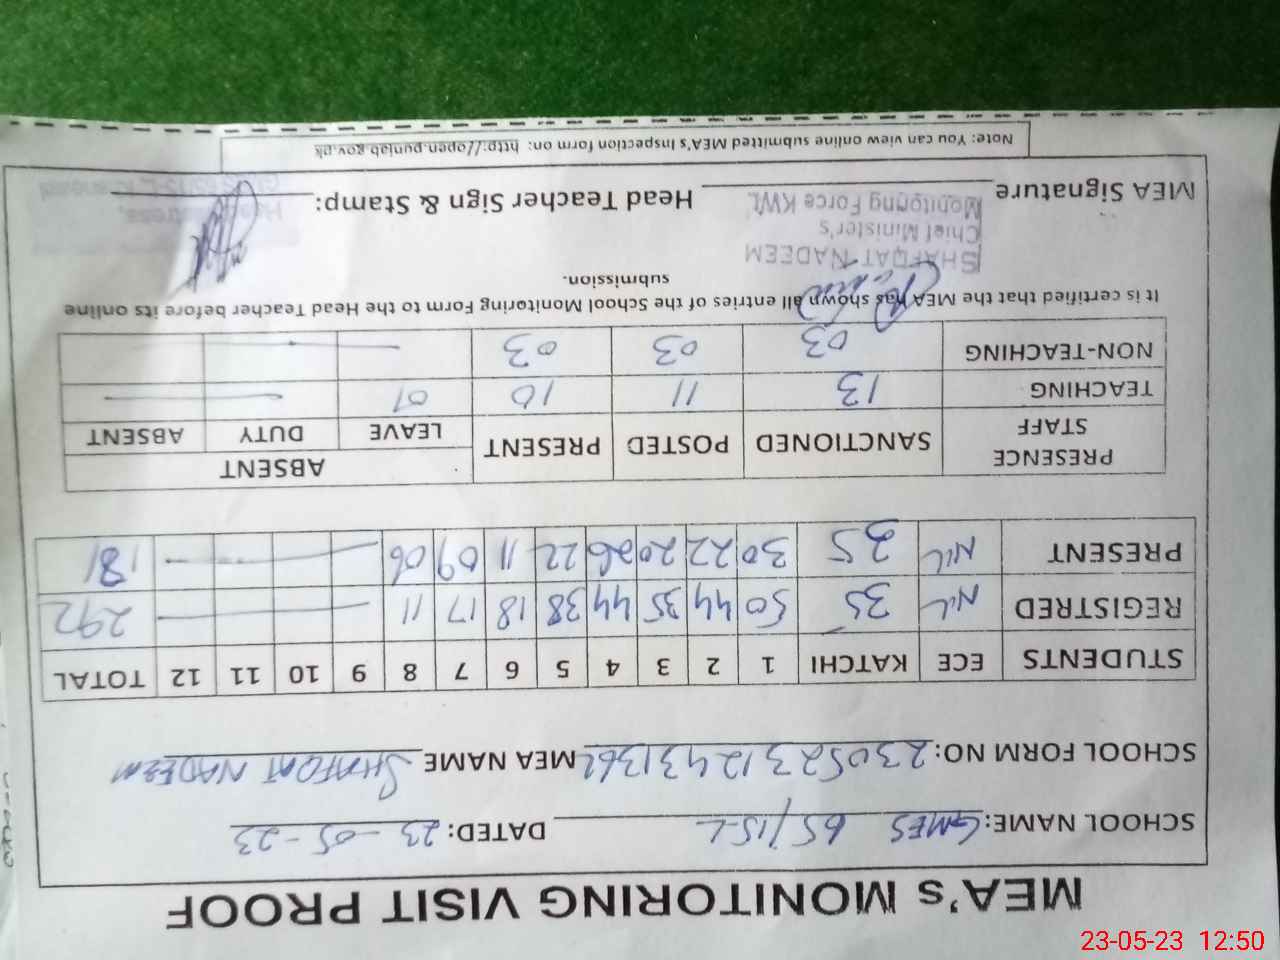 MEA's MONITORING VISIT PROOF
SCHOOL NAME: GMES 65/15-L DATED: 23-05-23
SCHOOL FORM NO: 23052312431362 MEA NAME SHAFQAT NADEEM
STUDENTS ECE KATCHI 1 2 3 4 5 6 7 8 9 10 11 12 TOTAL
REGISTRED NIL 35 50 44 35 44 38 18 17 11 292
PRESENT NIL 25 30 22 20 26 22 11 09 06 181
PRESENCE STAFF SANCTIONED POSTED PRESENT ABSENT
LEAVE DUTY ABSENT
TEACHING 13 11 10 01
NON-TEACHING 03 03 03
It is certified that the MEA has shown all entries of the School Monitoring Form to the Head Teacher before its online
submission.
SHAFQAT NADEEM
Chief Minister's
Monitoring Force KWL
MEA Signature Head Teacher Sign & Stamp:
Note: You can view online submitted MEA's Inspection form on: http://open.punjab.gov.pk
23-05-23 12:50